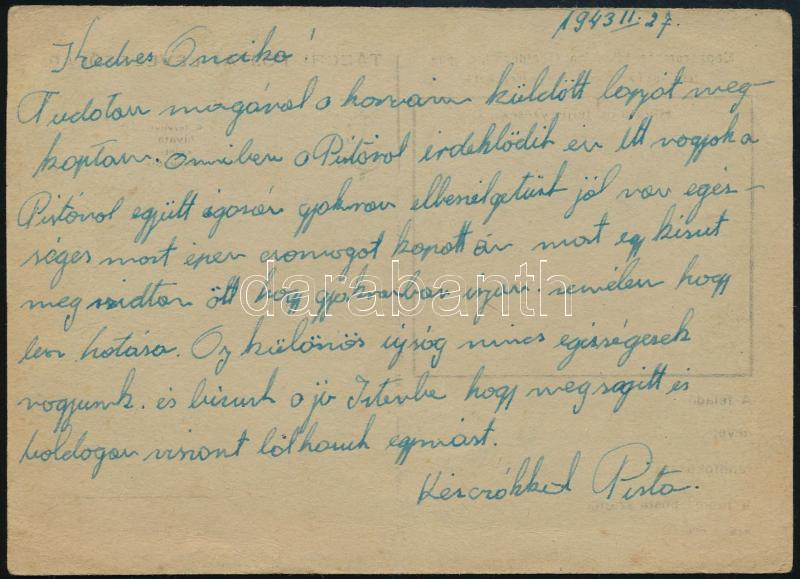 1943 II. 27.
Kedves Oncika!
Tudatom magával a hozzám küldött lapját meg-
kaptam. amiben a Pistáról érdeklődik én itt vagyok a
Pistával együtt igazán gyakran elbeszélgetünk jól van egés-
séges most épen csomagot kapott én most egy kicsit
meg szidtam őtt hogy gyakrabban irjan. remélem hogy
len hatása. Az különös újság nincs egésségesek
vagyunk. és bizunk a jó Istenbe hogy meg sagitt és
boldogan viszont láthassuk egymást.
Kézcsókkal Pista.
darabanth